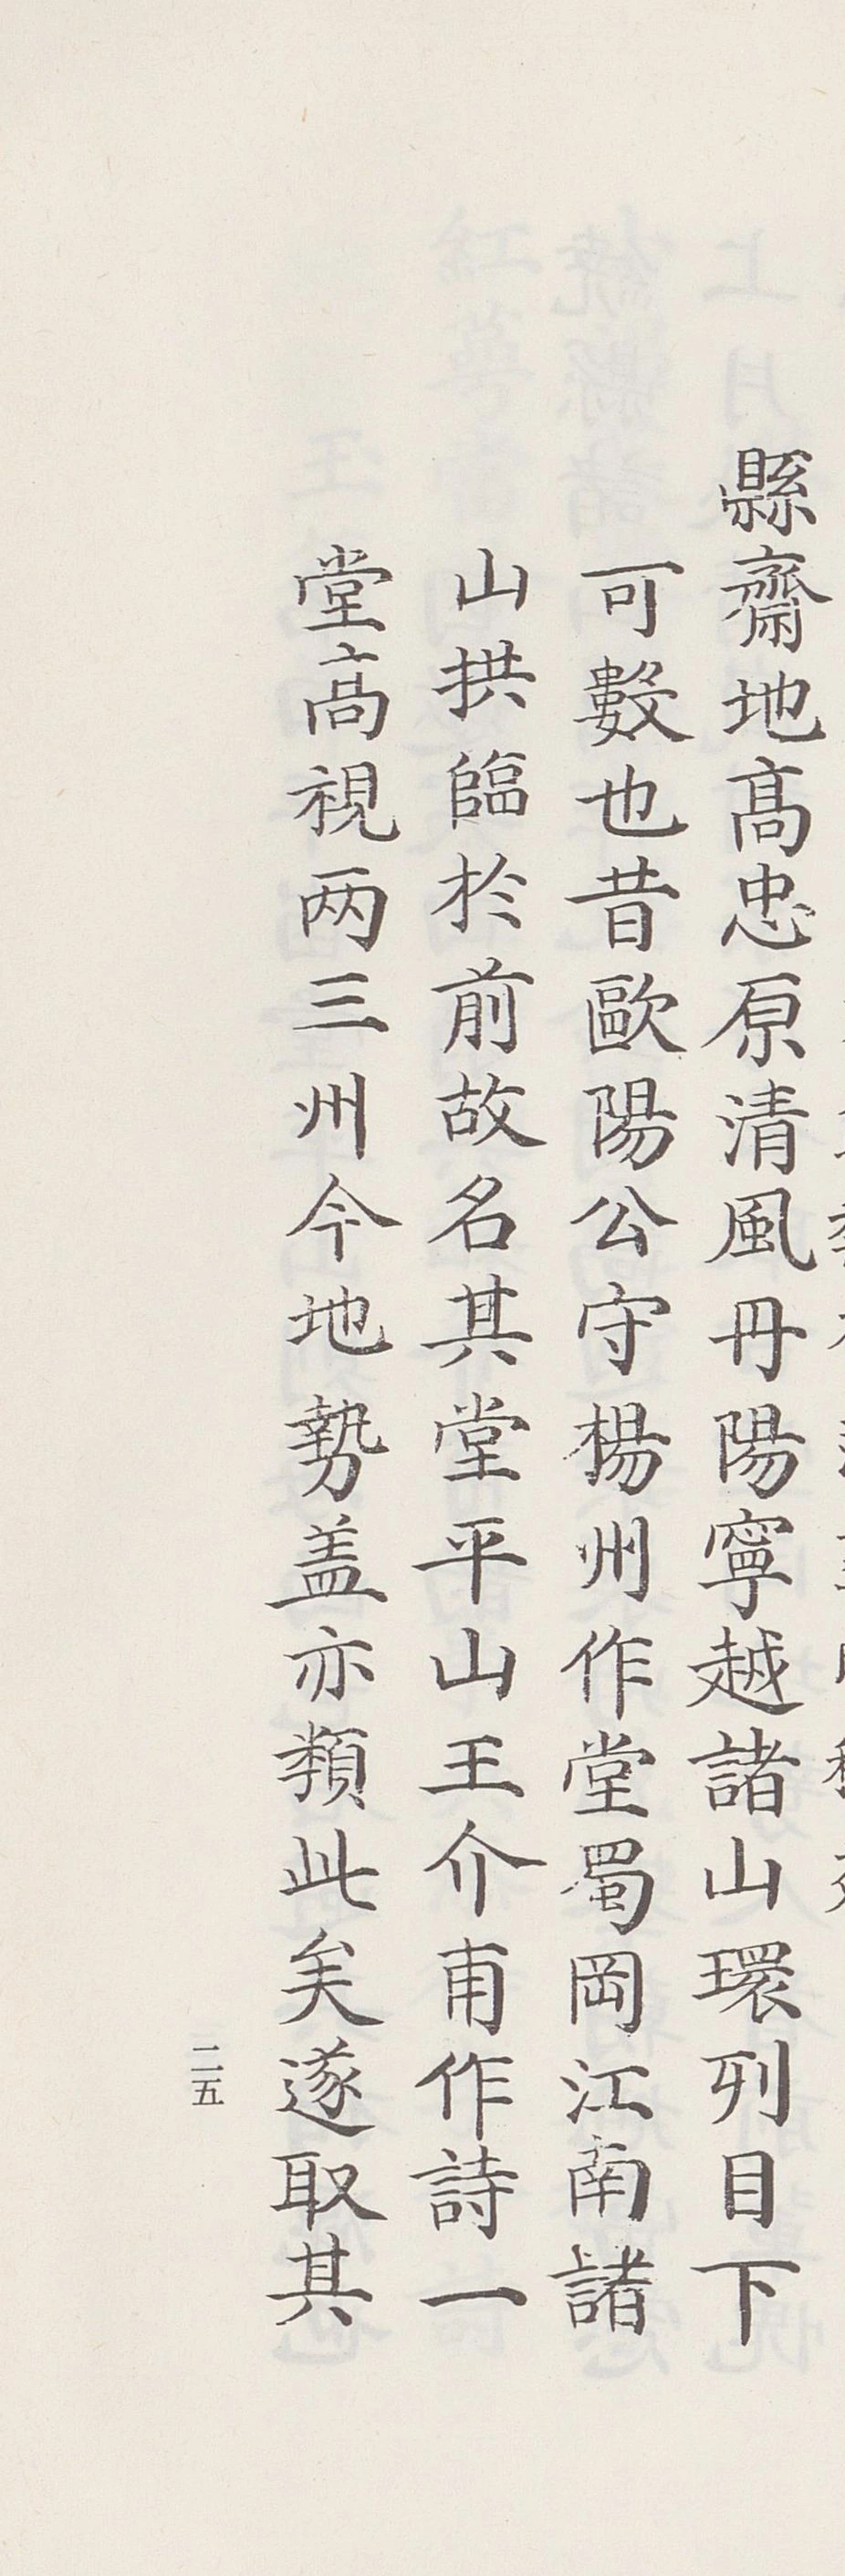 縣齋地髙忠原清風丹陽寧越諸山環列目下
可數也昔歐陽公守楊州作堂蜀岡江南諸
山拱臨於前故名其堂平山王介甫作詩一
堂高視两三州今地勢盖亦類此矣遂取其
二五